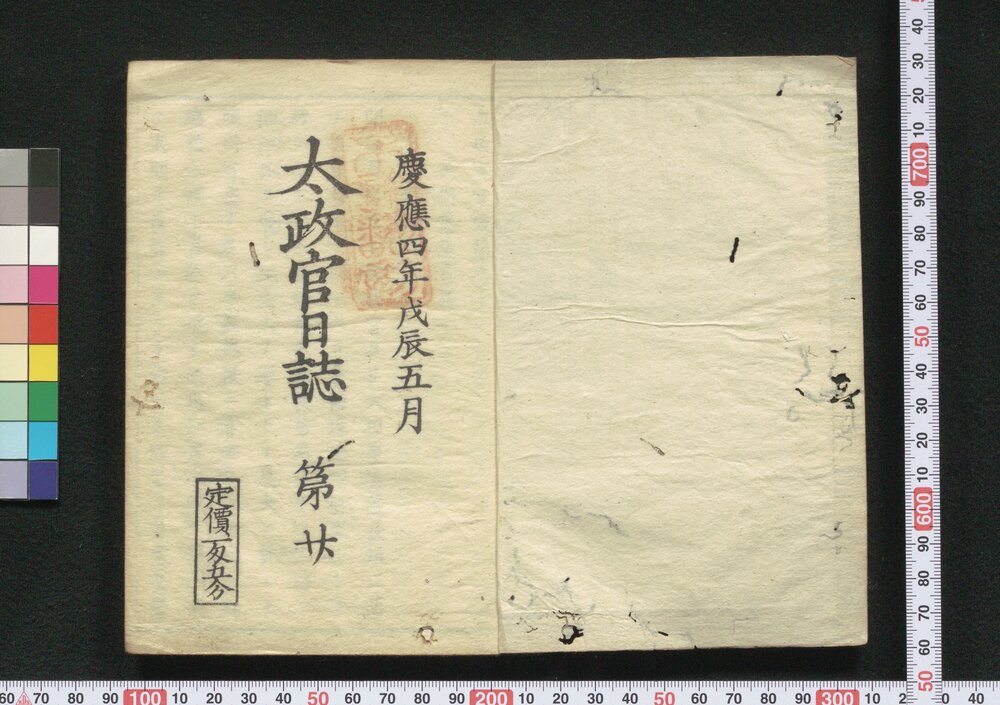 慶應四年戊辰五月
太政官日誌 第廿
定價一匁五分
60 70 80 90 100 10 20 30 40 50 60 70 80 90 200 10 20 30 40 50 60 70 80 90 300 10 2 30 40
50 40 30 20 10 700 90 80 70 60 50 40 30 20 10 600 90 80 70 60 50